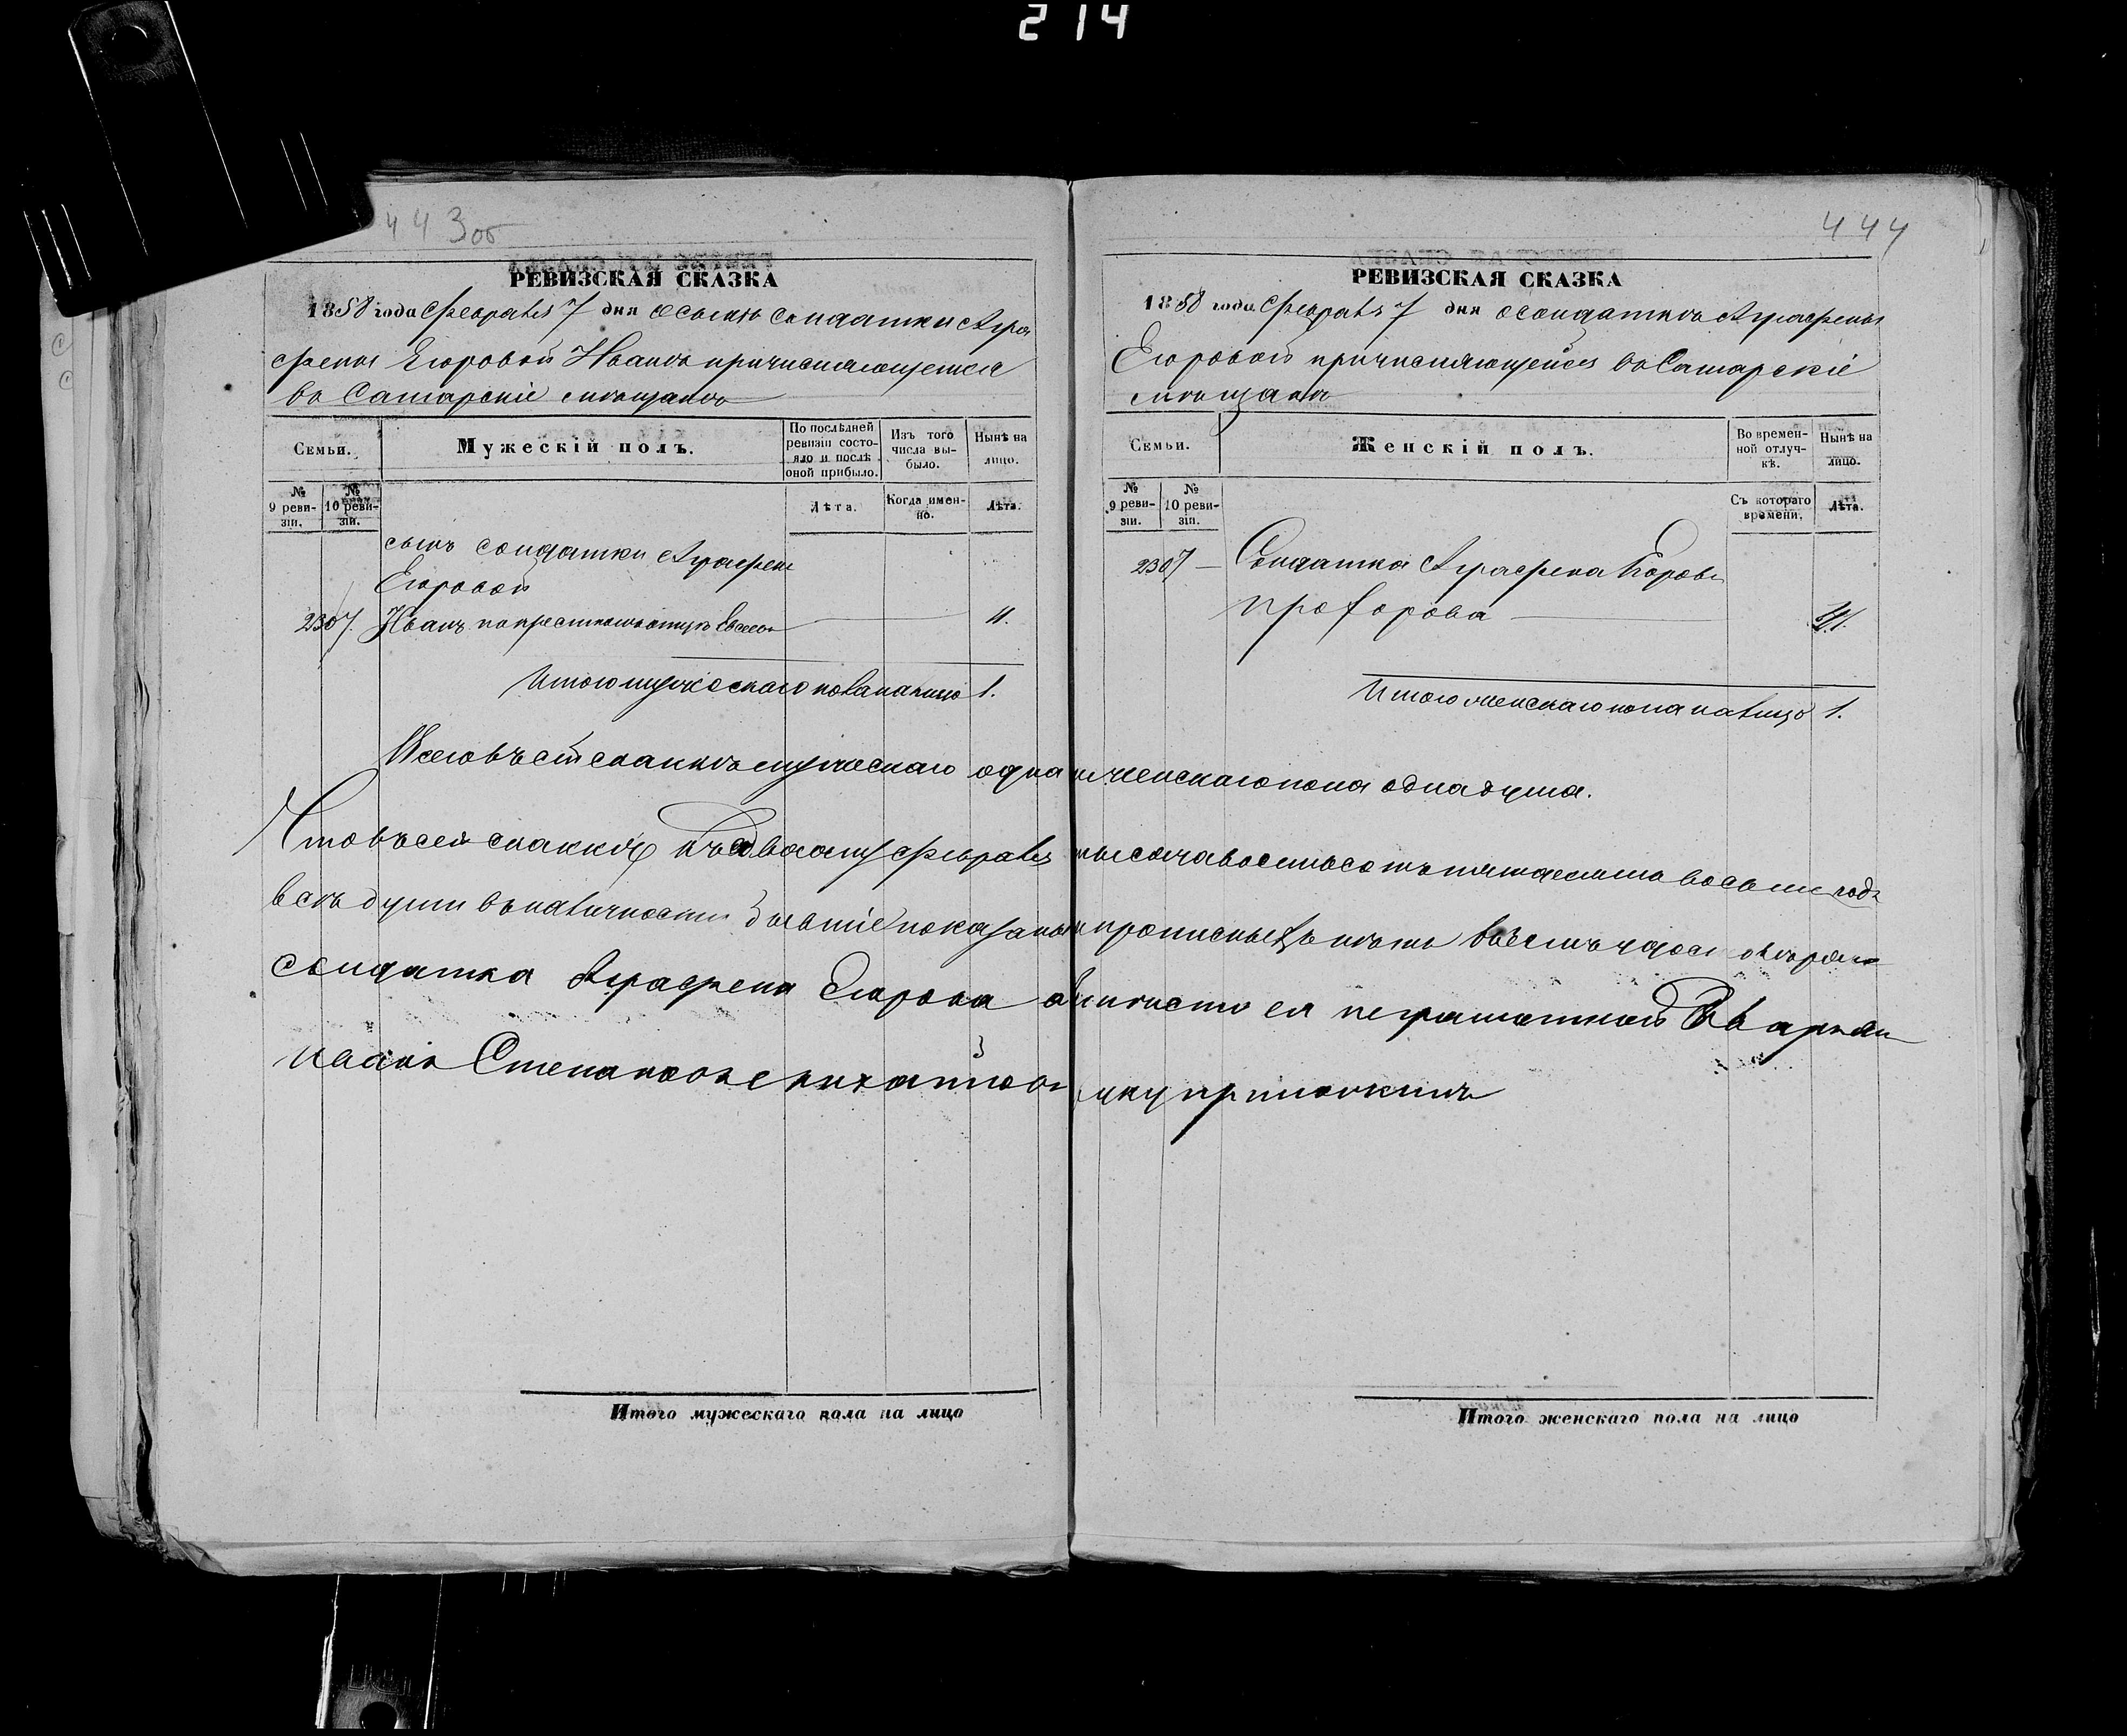 214
443об
РЕВИЗСКАЯ СКАЗКА
1858 года Февраля 7 дня о сынѣ солдатки Агра
фены Егоровой Иванѣ причисляющемся
въ Самарскіе мѣщане
Семьи.
Мужескій полъ.
По послѣдней ревизіи состояло и послѣ оной прибыло.
Изъ того числа выбыло.
Нынѣ на лицо.
№ 9 ревизіи.
№ 10 ревизіи.
Лѣта.
Когда именно.
Лѣта.
сынъ солдатки Аграфены
Егоровой
2307. Иванъ по крестному отцу 11.
Итого мужескаго пола на лицо 1.
444
РЕВИЗСКАЯ СКАЗКА
1858 года Февраля 7 дня о солдаткѣ Аграфены
Егоровой причисляющейся въ Самарскіе
мѣщане
Семьи.
Женскій полъ.
Во временной отлучкѣ.
Нынѣ на лицо.
№ 9 ревизіи.
№ 10 ревизіи.
Съ котораго времени.
Лѣта.
2307 — Солдатка Аграфена Егорова
Прохорова
Итого женскаго пола на лицо 1.
Всего въ сей сказкѣ мужескаго одна и женскаго пола одна душа.
Что въ сей сказкѣ Февраля тысяча восемьсотъ пятьдесятъ восьми года
всѣ души въ наличности бывшіе показаны и прописныхъ нѣтъ въ томъ
солдатка Аграфена Егорова а вмѣсто ея неграмотной
Степановъ руку приложилъ
Итого мужескаго пола на лицо
Итого женскаго пола на лицо